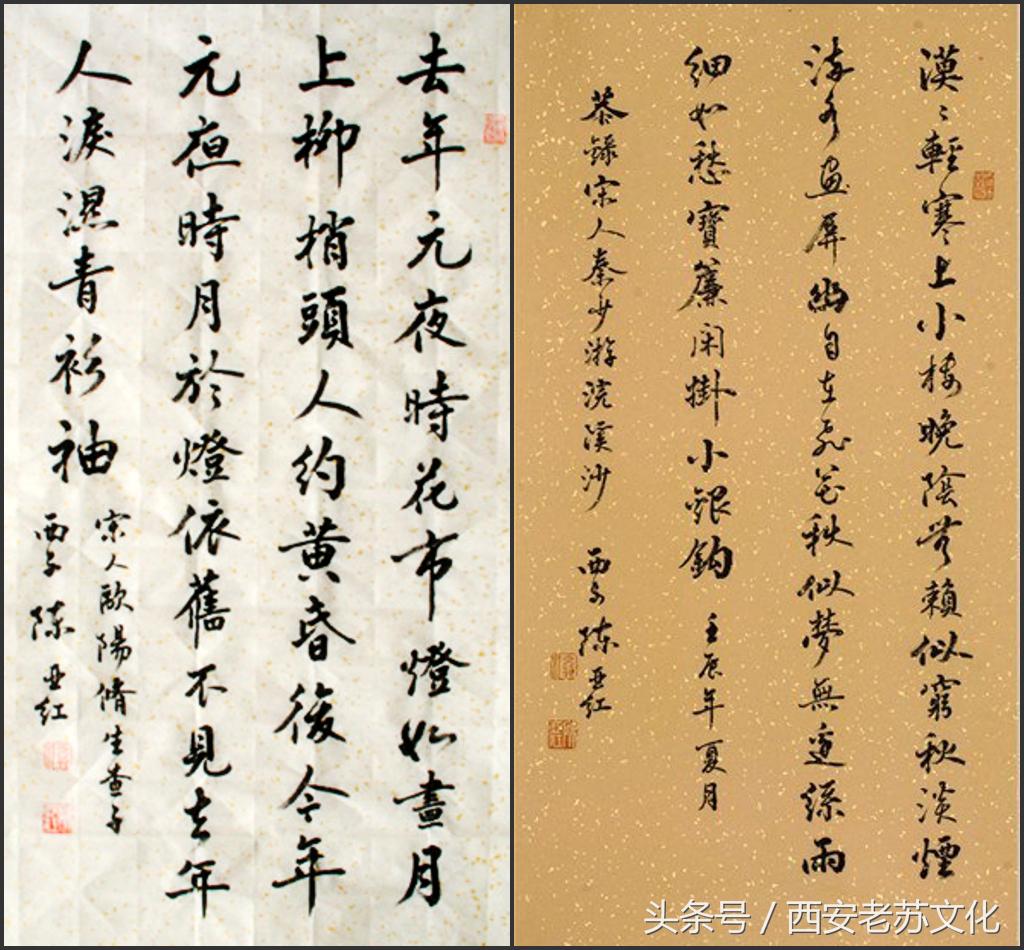 去年元夜時花市燈如晝月
上柳梢頭人約黃昏後今年
元亱時月於燈依舊不見去年
人淚濕青衫袖
宋人歐陽脩生查子
西子陳亞紅
漠〻輕寒上小樓晚陰无賴似窮秋淡煙
流水畫屏幽自在飛花秋似夢無邊絲雨
細如愁寶簾閑掛小銀鈎 壬辰年夏月
恭錄宋人秦少游浣溪沙 西子陳亞紅
头条号 / 西安老苏文化